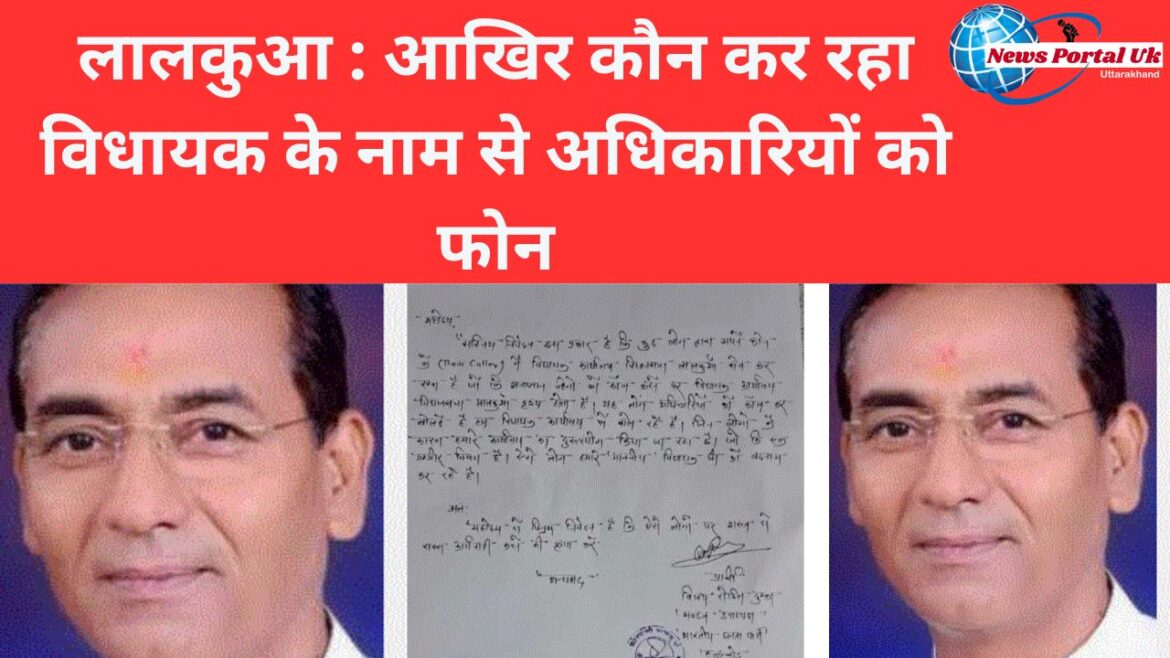 लालकुआ : आखिर कौन कर रहा
विधायक के नाम से अधिकारियों को
फोन
News Portal Uk
Uttarakhand
महोदय,
सविनय निवेदन इस प्रकार है कि कुछ लोग द्वारा अपने फोन
में (True Caller) में विधायक कार्यालय विधानसभा लालकुआँ सेव कर
रखा है जो कि सामान्य लोगों को कॉल करने पर विधायक कार्यालय
विधानसभा लालकुआँ होता है। यह लोग अधिकारियों को कॉल कर
बोलते है हम विधायक कार्यालय से बोल रहे है। जिन लोगों के
कारण हमारे कार्यालय का दुरुपयोग किया जा रहा है। जो कि एक
गम्भीर विषय है। ऐसे लोग हमारे माननीय विधायक जी को बदनाम
कर रहे है।
अतः
महोदय से विनम्र निवेदन है कि ऐसे लोगों पर सख्त से
सख्त कार्यवाही करने की कृपा करें
धन्यवाद
प्रार्थी
मण्डल उपाध्यक्ष
भारतीय जनता पार्टी